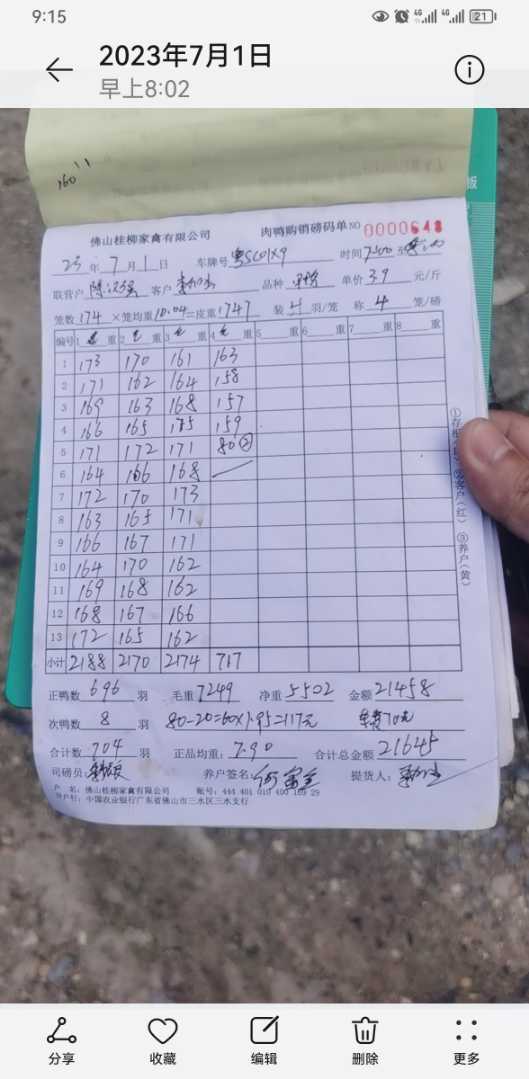 9:15
4G 4G 21
2023年7月1日
早上8:02
160
佛山桂柳家禽有限公司 肉鸭购销磅码单 NO 0000648
23 年 7 月 1 日 车牌号 粤SC01X9 时间
联营户 客户 品种 单价 3.9 元/斤
笼数 174 ×笼均重 10.04 =皮重 1747 装 4 羽/笼 称 4 笼/磅
编号 1 重 2 重 3 重 4 重 5 重 6 重 7 重 8 重
1 173 170 161 163
2 171 162 164 158
3 169 163 168 157
4 166 165 175 159
5 171 172 171 80②
6 164 166 168
7 172 170 173
8 163 165 171
9 166 167 171
10 164 170 162
11 169 168 162
12 168 167 166
13 172 165 162
小计 2188 2170 2174 717
①存根 ②客户(红) ③养户(黄)
正鸭数 696 羽 毛重 7249 净重 5502 金额 21458
次鸭数 8 羽 80-20=60×1.95=117元 70元
合计数 704 羽 正品均重: 7.90 合计总金额 21645
司磅员: 养户签名: 提货人:
户 名: 佛山桂柳家禽有限公司 账号:
开户行: 中国农业银行广东省佛山市三水区三水支行
分享 收藏 编辑 删除 更多